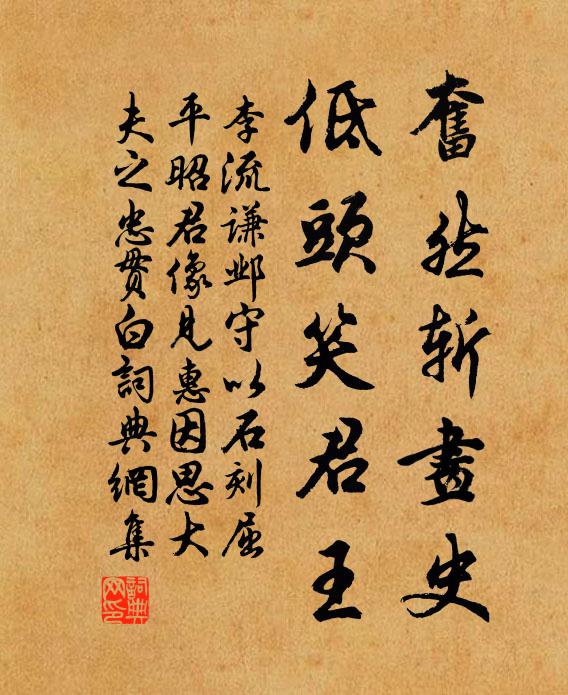 奮然斬畫史
低頭笑君王
李流謙邺守以石刻屈
平昭君像見惠因思大
夫之忠貫白詞典網集